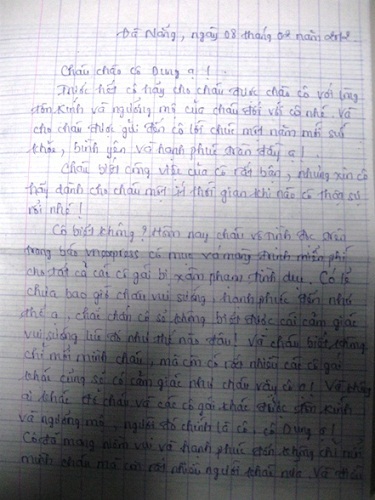 Đà Nẵng, ngày 08 tháng 02 năm 2012.
Cháu chào cô Dung ạ!
Trước hết cô hãy cho cháu được chào cô với lòng
tôn kính và ngưỡng mộ của cháu đối với cô nhé. Và
cho cháu được gửi đến cô lời chúc một năm mới sức
khỏe, bình yên và hạnh phúc tràn đầy ạ!
Cháu biết công việc của cô rất bận, nhưng xin cô
hãy dành cho cháu một ít thời gian khi nào cô thật sự
rỗi nhé!
Cô biết không? Hôm nay cháu vô tình đọc trên
trang báo vnexpress có mục vá màng trinh miễn phí
cho tất cả các cô gái bị xâm phạm tình dục. Có lẽ
chưa bao giờ cháu vui sướng, hạnh phúc đến như
thế ạ, chắc chắn cô sẽ không biết được cái cảm giác
vui sướng lúc đó như thế nào đâu! Và cháu biết, không
chỉ mỗi mình cháu, mà còn có rất nhiều các cô gái
khác cũng sẽ có cảm giác như cháu vậy cô ạ! Và không
ai khác cho cháu và các cô gái khác được tôn kính
và ngưỡng mộ, người đó chính là cô, cô Dung ạ!
Cô đã mang niềm vui và hạnh phúc đến không chỉ riêng
mình cháu mà còn rất nhiều người khác nữa. Và cháu